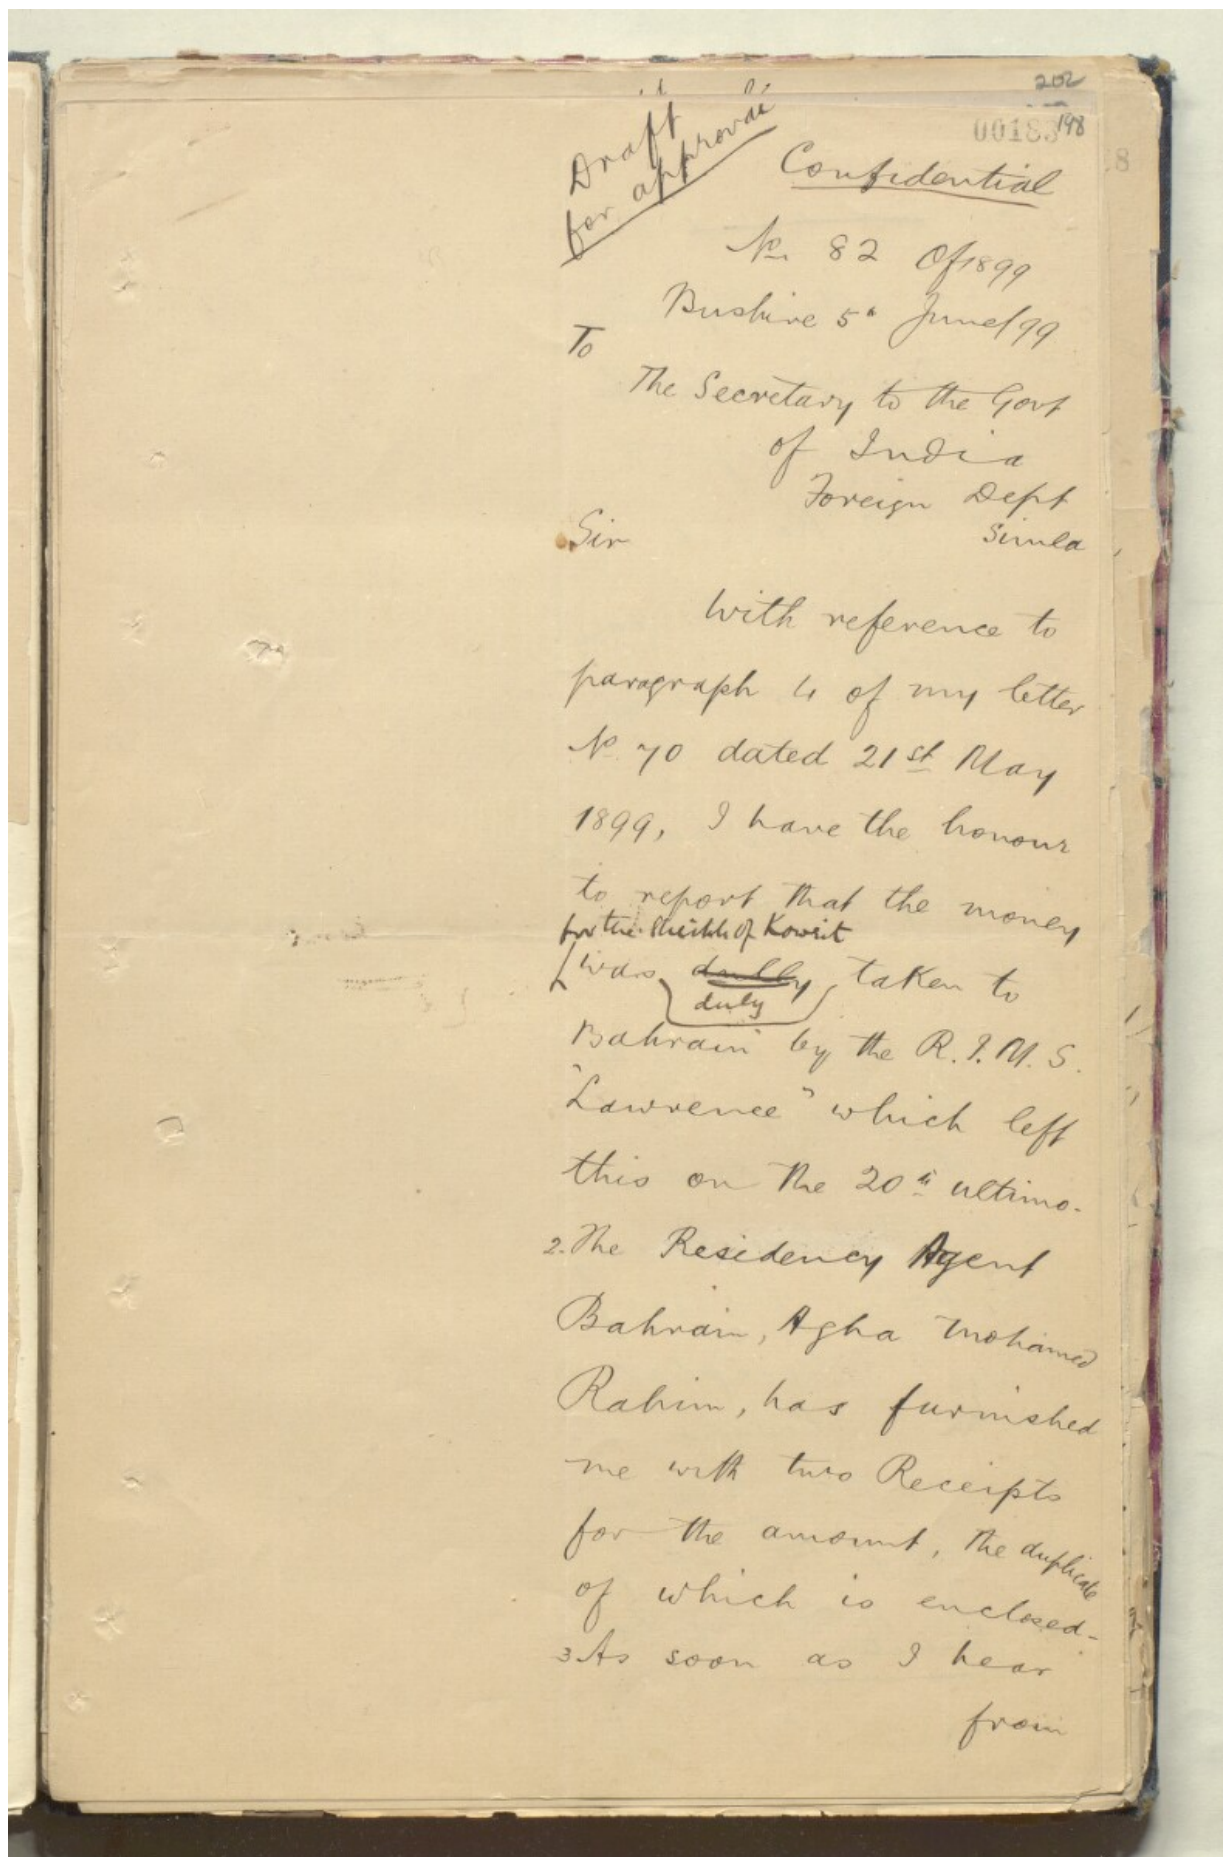 202
00183
198
8
Draft
for approval
Confidential
No. 82 Of 1899
Bushire 5th June/99
To
The Secretary to the Govt
of India
Foreign Dept
Simla
Sir
With reference to
paragraph 4 of my letter
No 70 dated 21st May
1899, I have the honour
to report that the money
for the Sheikh of Koweit
was dully taken to
duly
Bahrain by the R.I.M.S.
"Lawrence" which left
this on the 20th ultimo.
2. The Residency Agent
Bahrain, Agha Mohamed
Rahim, has furnished
me with two Receipts
for the amount, the duplicate
of which is enclosed-
3 As soon as I hear
from